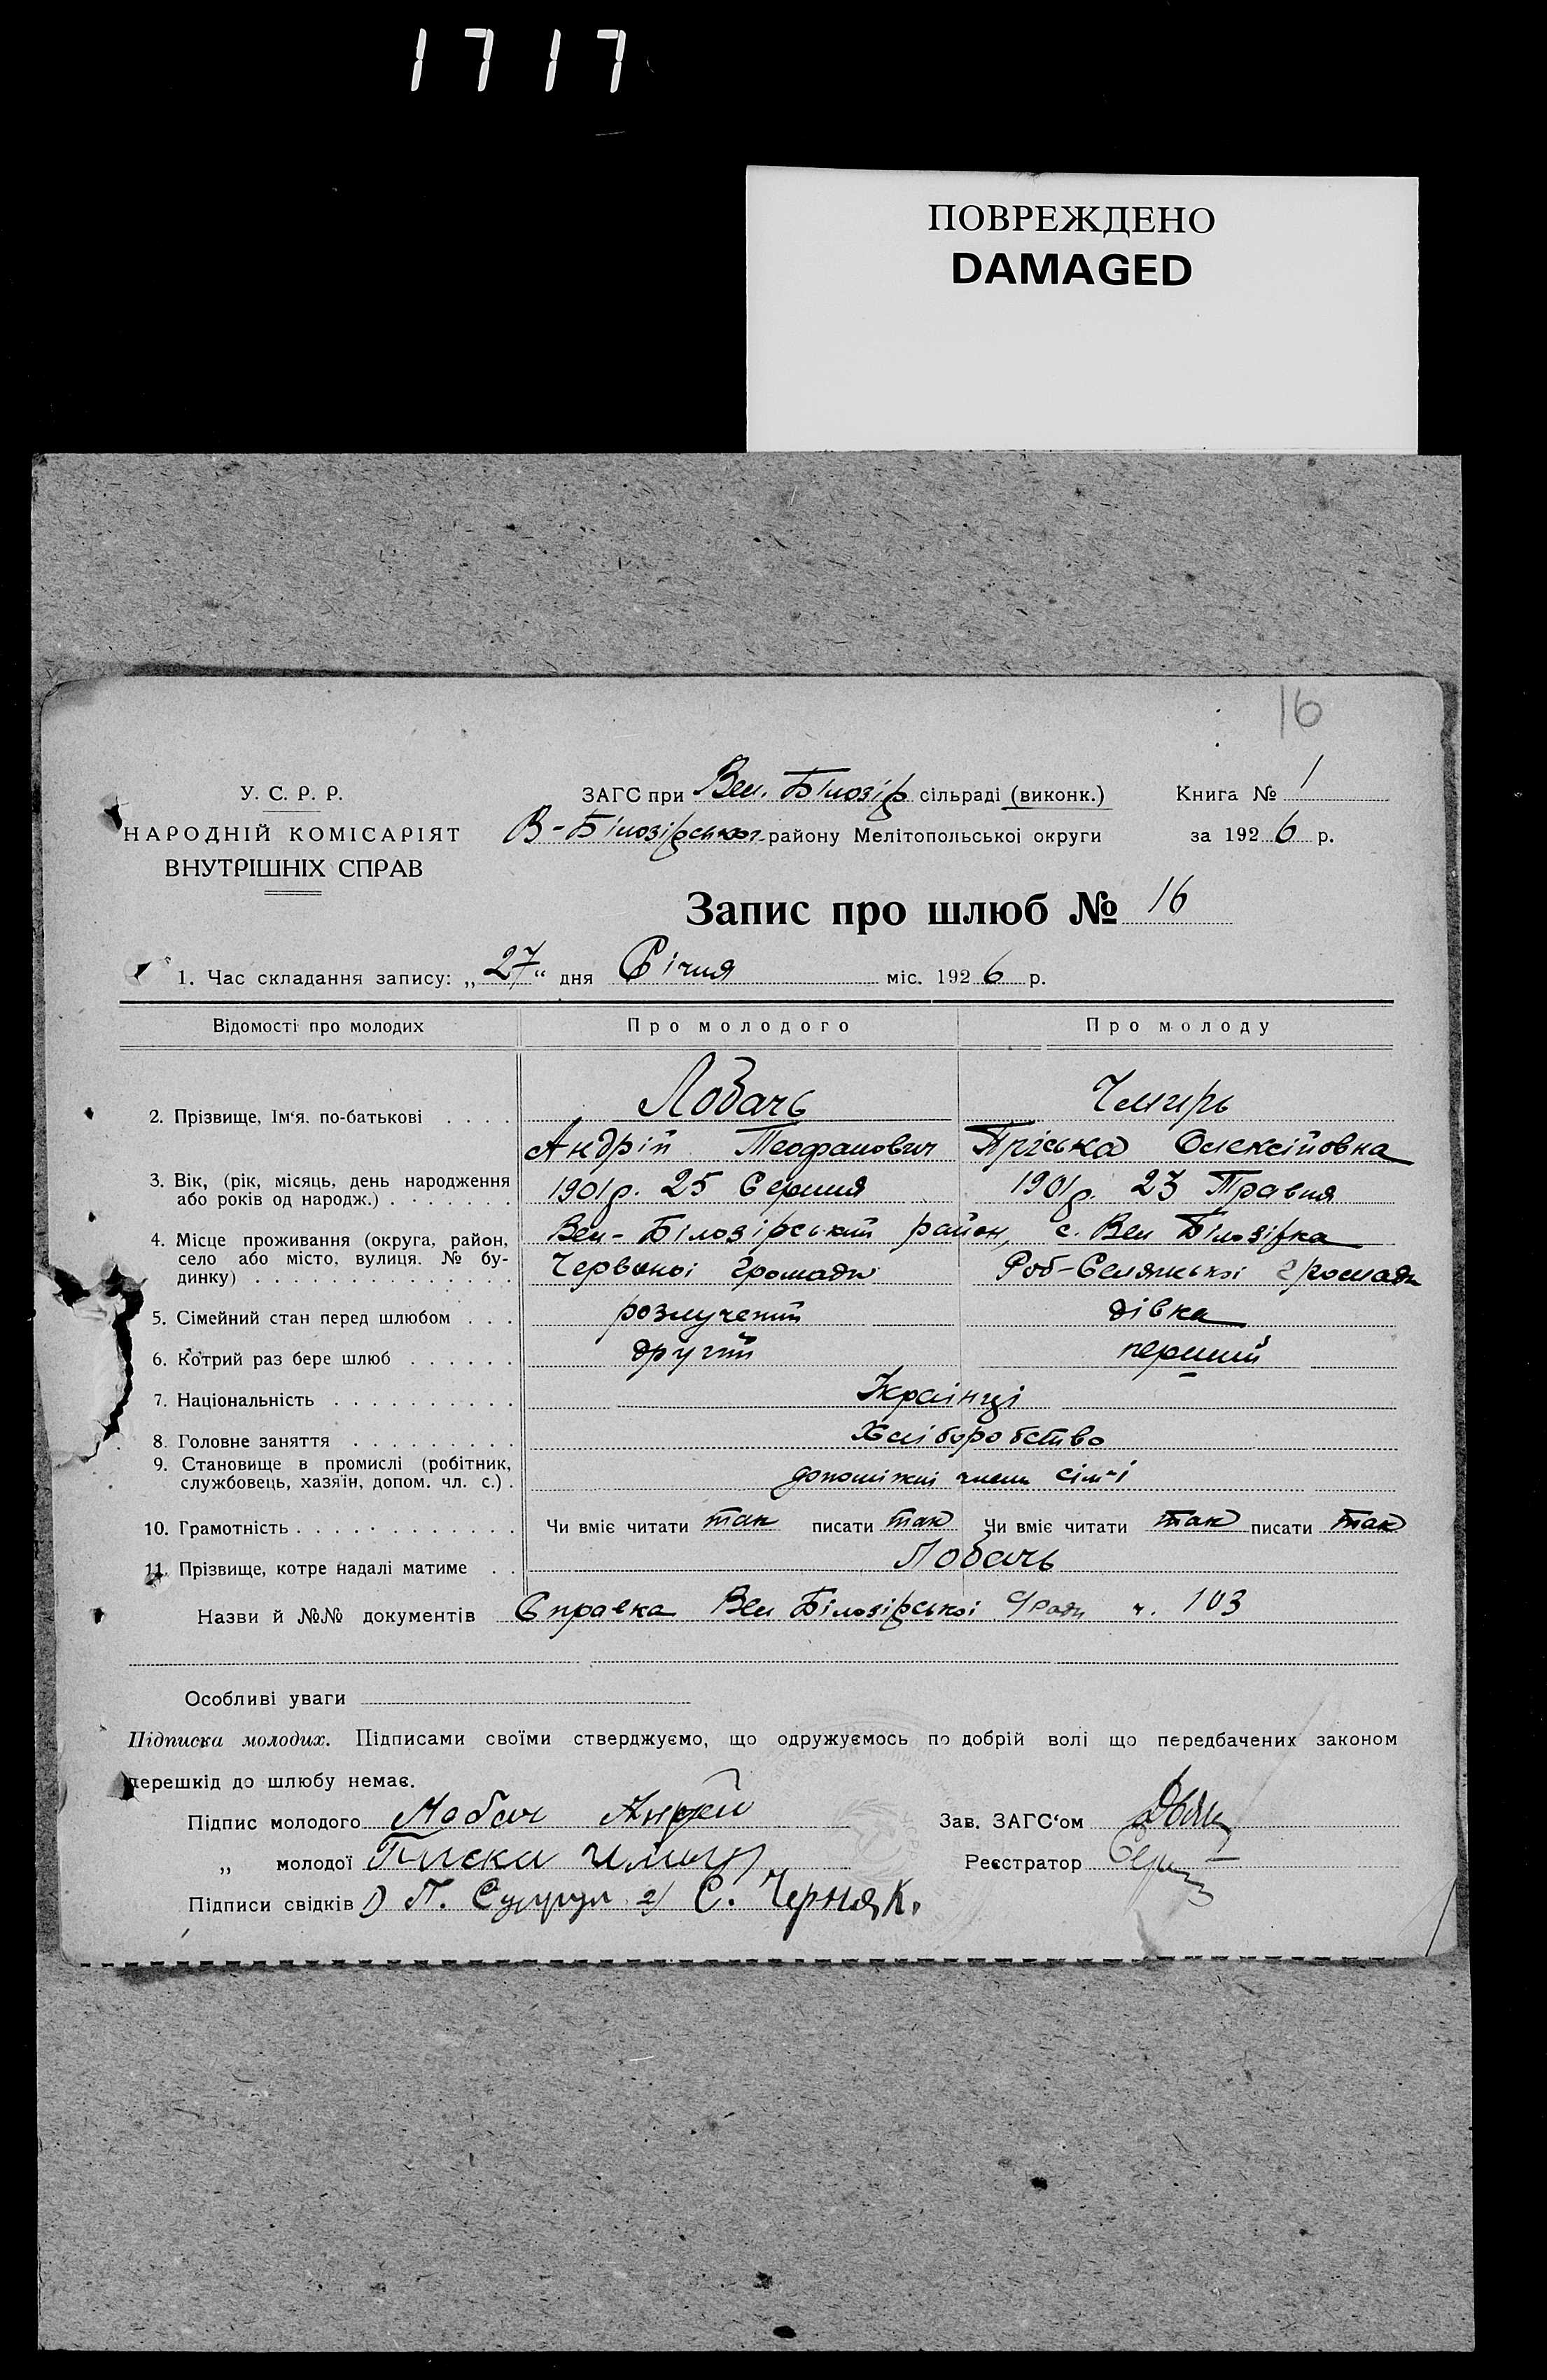 1717
ПОВРЕЖДЕНО
DAMAGED
16
У. С. Р. Р.
НАРОДНІЙ КОМІСАРІЯТ
ВНУТРІШНІХ СПРАВ
ЗАГС при Вел. Білозір сільраді (виконк.) Книга № 1
В-Білозірського району Мелітопольськоі округи за 1926 р.
Запис про шлюб № 16
1. Час складання запису: „27“ дня Січня міс. 1926 р.
Відомості про молодих Про молодого Про молоду
2. Прізвище, Ім‘я, по-батькові . . . . Лобачь Чмирь
Андрій Теофанович Пріська Олексійовна
3. Вік, (рік, місяць, день народження
або років од народж.) . . . . . . . 1901 р. 25 Серпня 1901 р. 23 Травня
4. Місце проживання (округа, район,
село або місто, вулиця. № бу-
динку) . . . . . . . . . . . . . Вел-Білозірський район, с. Вел Білозірка
Червоноі Громади Роб-Селянськоі громади
5. Сімейний стан перед шлюбом . . . розлучений дівка
6. Котрий раз бере шлюб . . . . . . другий перший
7. Національність . . . . . . . . . . Українці
8. Головне заняття . . . . . . . . . Хліборобство
9. Становище в промислі (робітник,
службовець, хазяїн, допом. чл. с.) . допоміжні члени сім-і
10. Грамотність . . . . . . . . . . . . Чи вміє читати так писати так Чи вміє читати так писати так
11. Прізвище, котре надалі матиме . . Лобачь
Назви й №№ документів Справка Вел Білозірськоі С/Ради ч. 103
Особливі уваги
Підписка молодих. Підписами своїми стверджуємо, що одружуємось по добрій волі що передбачених законом
перешкід до шлюбу немає.
Підпис молодого Лобач Андрей Зав. ЗАГС‘ом
„ молодої Реєстратор
Підписи свідків 1) П. 2) С. Черняк.